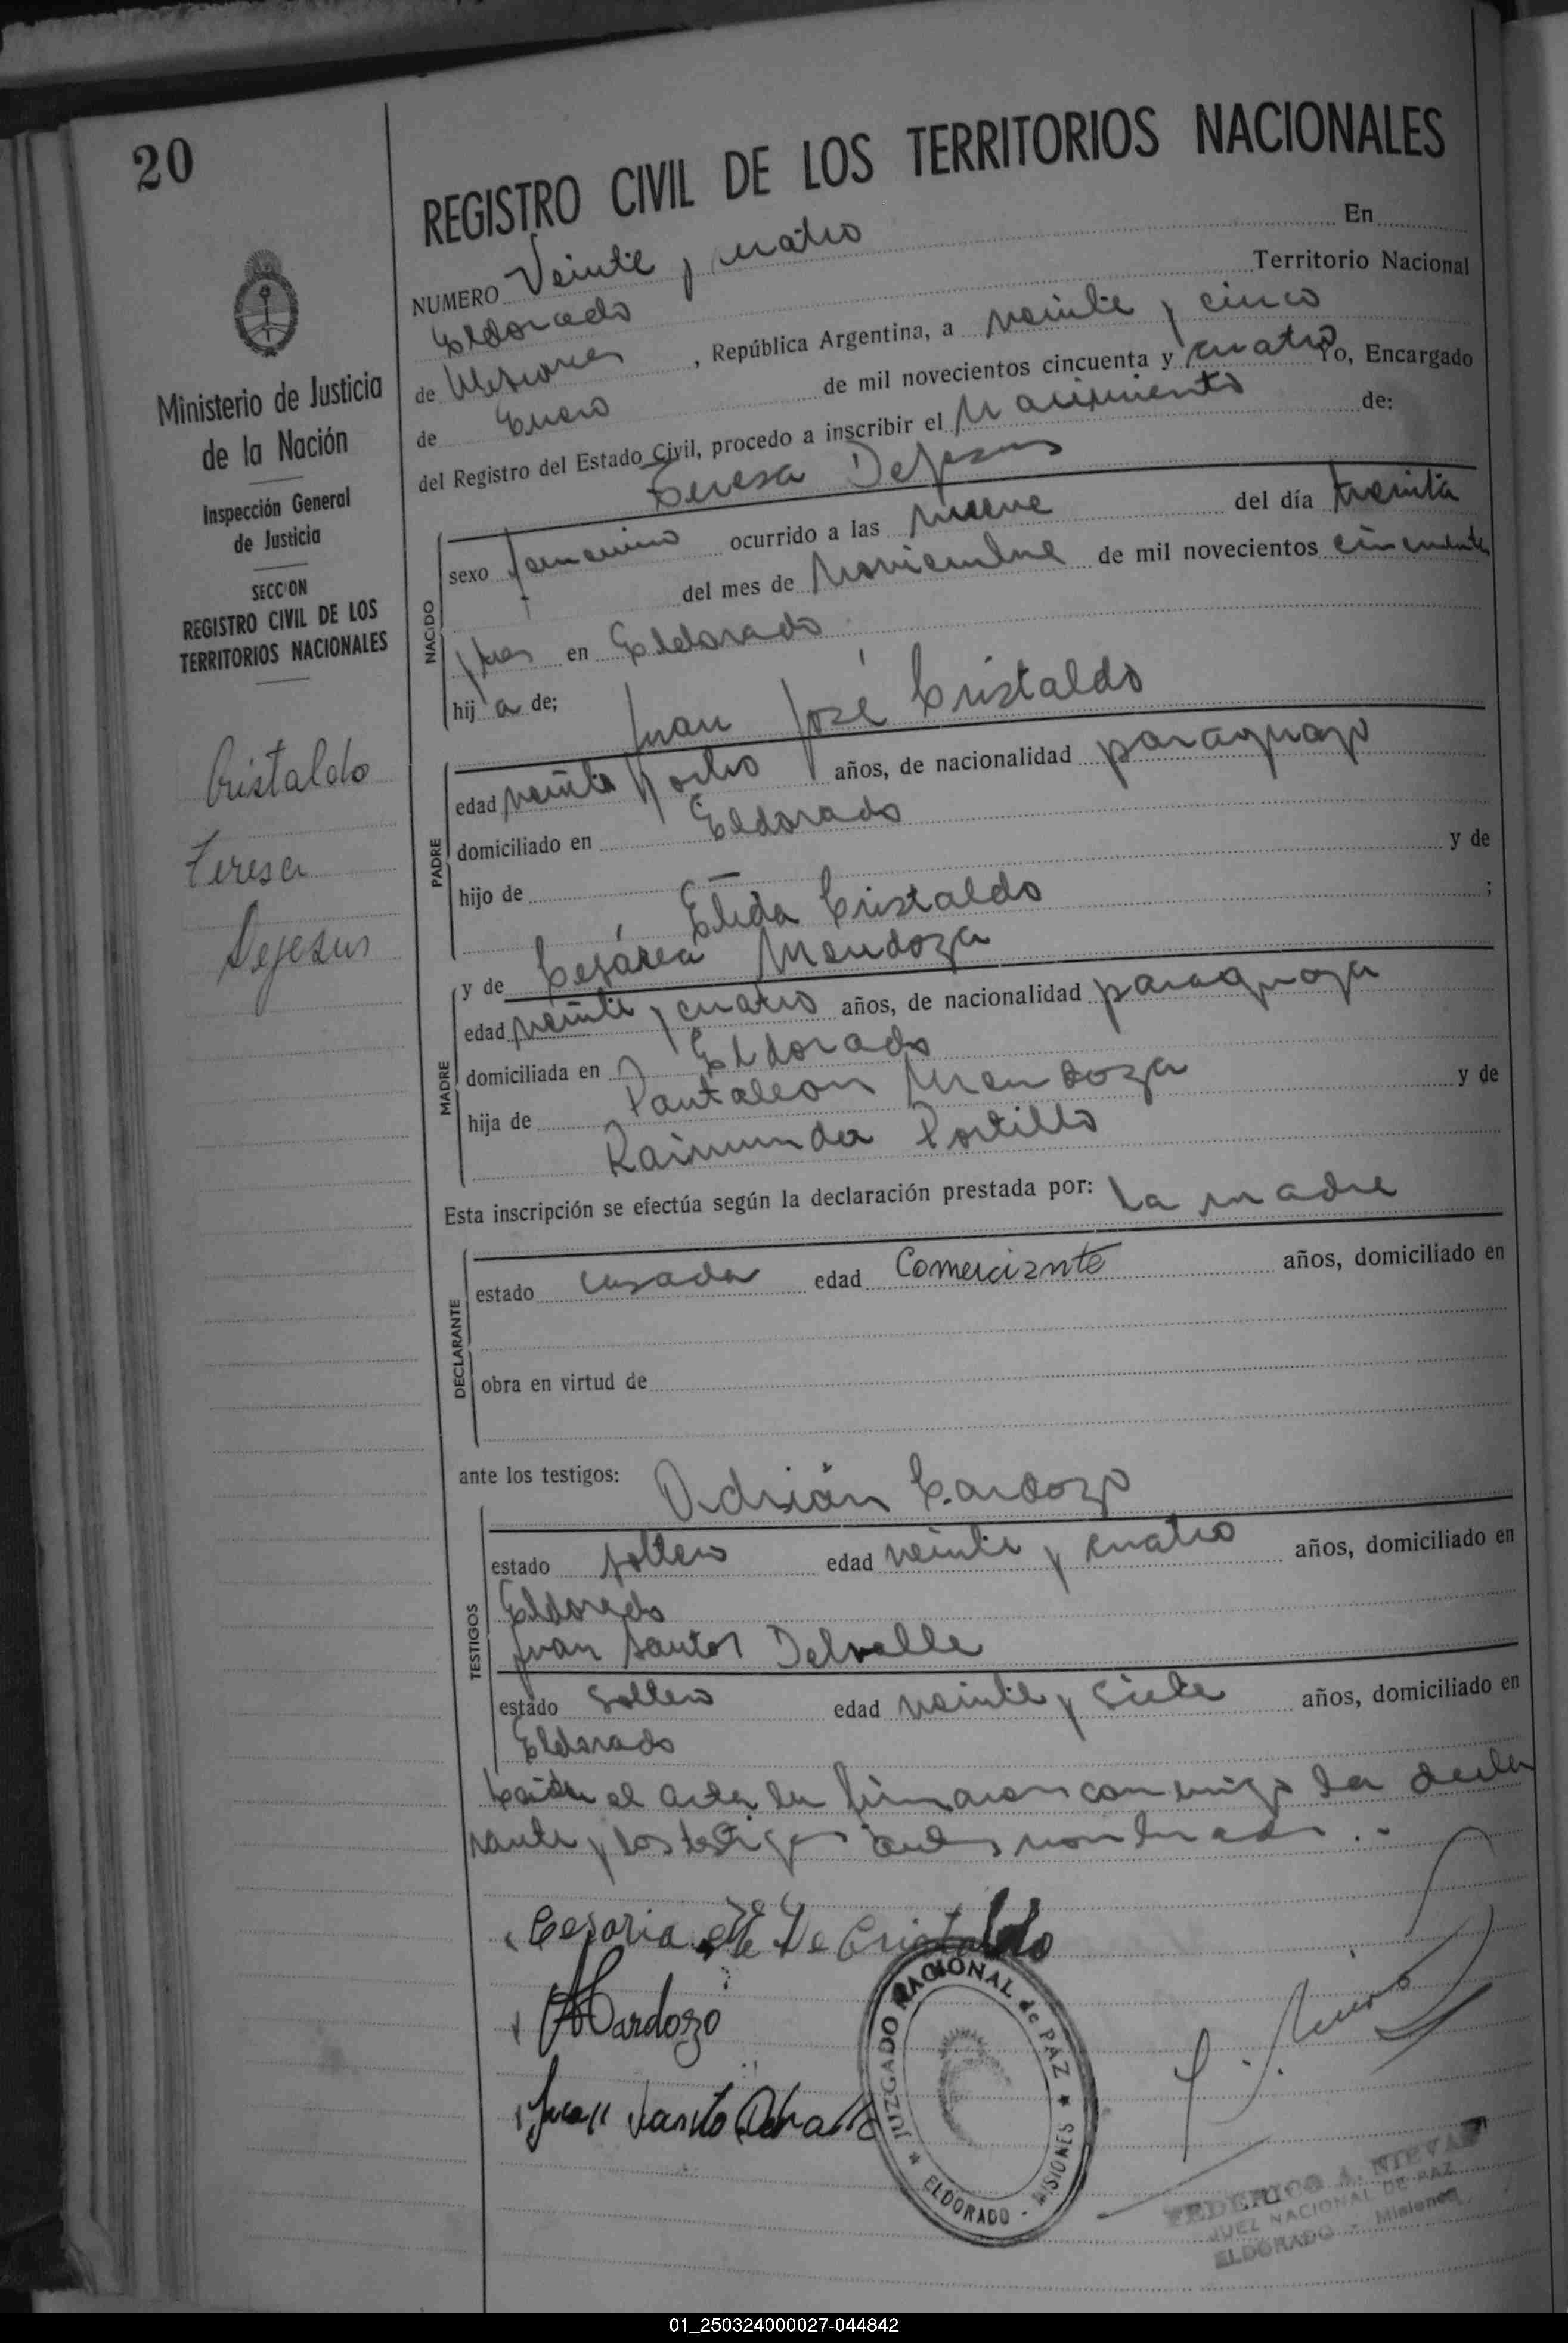 20
REGISTRO CIVIL DE LOS TERRITORIOS NACIONALES
Ministerio de Justicia
de la Nación
Inspección General
de Justicia
SECCION
REGISTRO CIVIL DE LOS
TERRITORIOS NACIONALES
Cristaldo
Teresa
Dejesus
NUMERO Veinte y cuatro En
Eldorado Territorio Nacional
de Misiones, República Argentina, a veinte y cinco
de Enero de mil novecientos cincuenta y cuatro Yo, Encargado
del Registro del Estado Civil, procedo a inscribir el Nacimiento de:
Teresa Dejesus
NACIDO
sexo femenino ocurrido a las nueve del día treinta
del mes de Noviembre de mil novecientos cincuenta
y tres en Eldorado
hija de; Juan José Cristaldo
PADRE
edad veinte y ocho años, de nacionalidad paraguayo
domiciliado en Eldorado
hijo de — y de
Elida Cristaldo ;
y de Cesárea Mendoza
MADRE
edad veinte y cuatro años, de nacionalidad paraguaya
domiciliada en Eldorado
hija de Pantaleon Mendoza y de
Raimunda Portillo
Esta inscripción se efectúa según la declaración prestada por: La madre
DECLARANTE
estado casada edad Comerciante años, domiciliado en
obra en virtud de
ante los testigos: Adrián Cardozo
TESTIGOS
estado soltero edad veinte y cuatro años, domiciliado en
Eldorado
Juan Santos Delvalle
estado soltero edad veinte y siete años, domiciliado en
Eldorado
Leida el acta la firmaron conmigo la decla
rante y los testigos antes nombrados.-
Cesaria M De Cristaldo
ACardozo
Juan Santo Delvalle
JUZGADO NACIONAL de PAZ
ELDORADO - MISIONES
FEDERICO A. NIEVAS
JUEZ NACIONAL DE PAZ
ELDORADO - Misiones
01_250324000027-044842